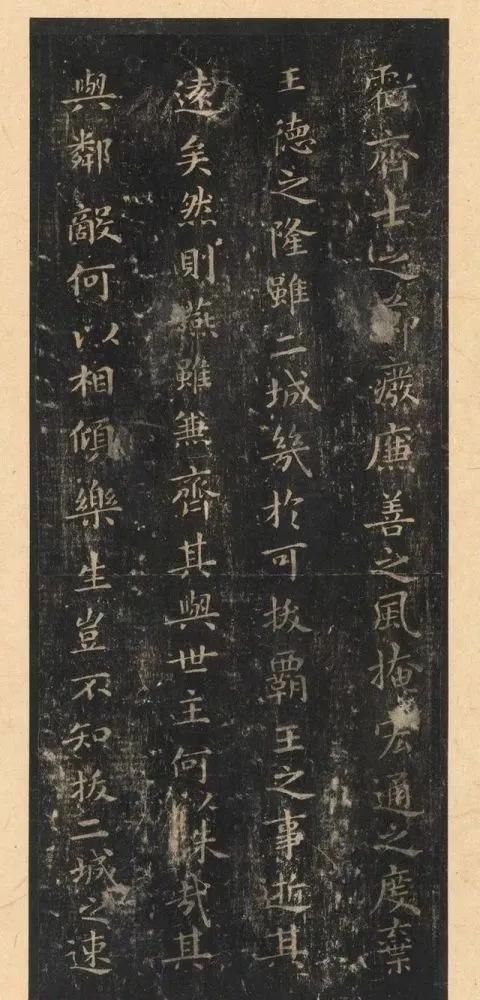 霸齊士之節廢廉善之風掩宏通之度棄
王德之隆雖二城幾於可拔霸王之事逝其
遠矣然則燕雖兼齊其與世主何以殊哉其
與鄰敵何以相傾樂生豈不知拔二城之速